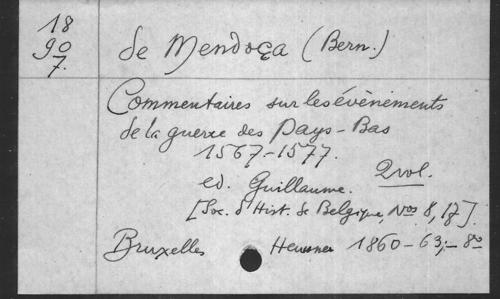 18
90
7.
de Mendoça (Bern.)
Commentaires sur les évènements
de la guerre des Pays-Bas
1567-1577.
2 vol.
ed. Guillaume.
[Soc. d'Hist. de Belgique Nos 8, 17].
Bruxelles Heussner 1860-63;- 8º